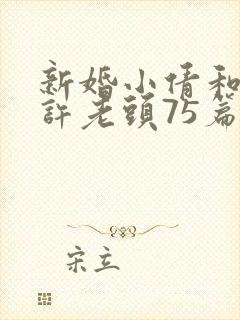 新婚小倩和
許老頭75篇
宋立